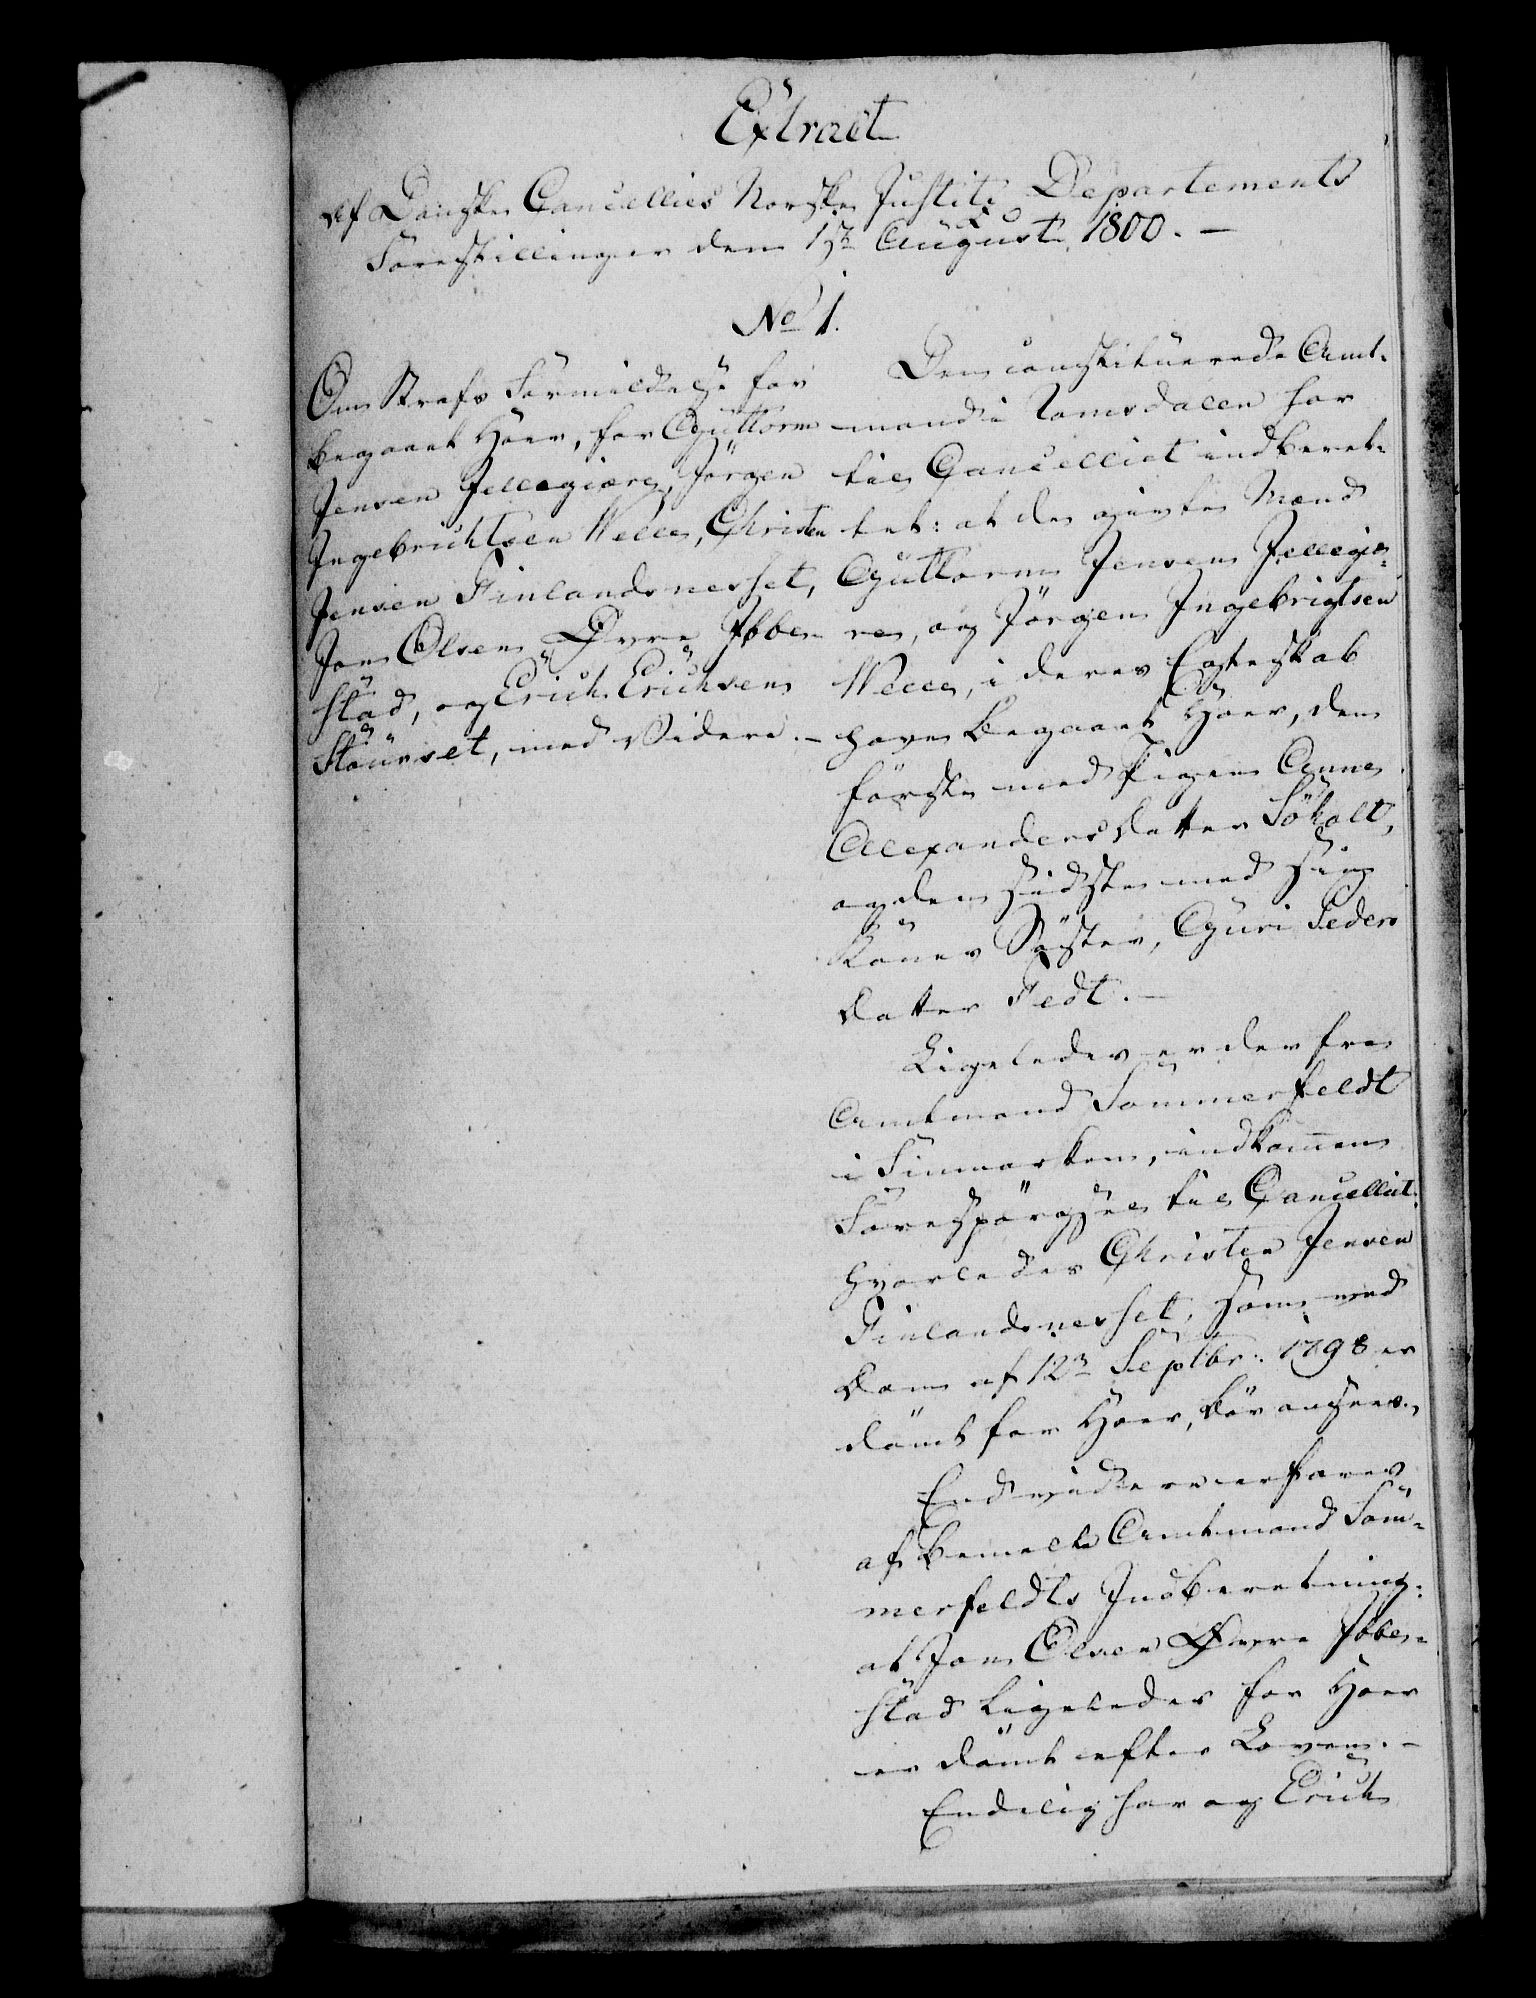 Extract
af Danske Cancellies Norske Justitz Departements
Forestillinger den 1ste August 1800. –
No 1.
Om Straffs Formildelse for
begaaet Hoer, for Guttorm
Jensen Jellegiære, Jörgen
Ingebrichtsen Welle, Christen
Jensen Finlandsneshet,
Jon Olsen Øvre Ibbe
stad, og Erich Erichsen
Staurset, med Videre. –
Den constituerede Amt-
mand i Romsdalen har
til Cancelliet indberet-
tet: at de gifte Mænd
Guttorm Jensen Jellegiæ-
re, og Jörgen Ingebrigtsen
Welle, i deres Egteskab
have begaaet Hoer, den
förste med Pigen Anne
Alexandersdatter Söholt,
og den sidste med sin
Kones Söster, Guri Peders
datter Tedt. –
Ligeledes er der fra
Amtmand Sommerfeldt
i Finmarken, indkommen
Forespörgsel til Cancelliet:
hvorledes Christen Jensen
Finlandsneshet, som ved
Dom af 12te Septbr: 1798 er
dömt for Hoer, bör ansees.
Endvidere erfares
af bemelte Amtmand Som-
merfeldts Indberetning:
at Jon Olsen Øvre Ibbe-
stad ligeledes for Hoer
er dömt efter Loven. –
Endelig har og Erich